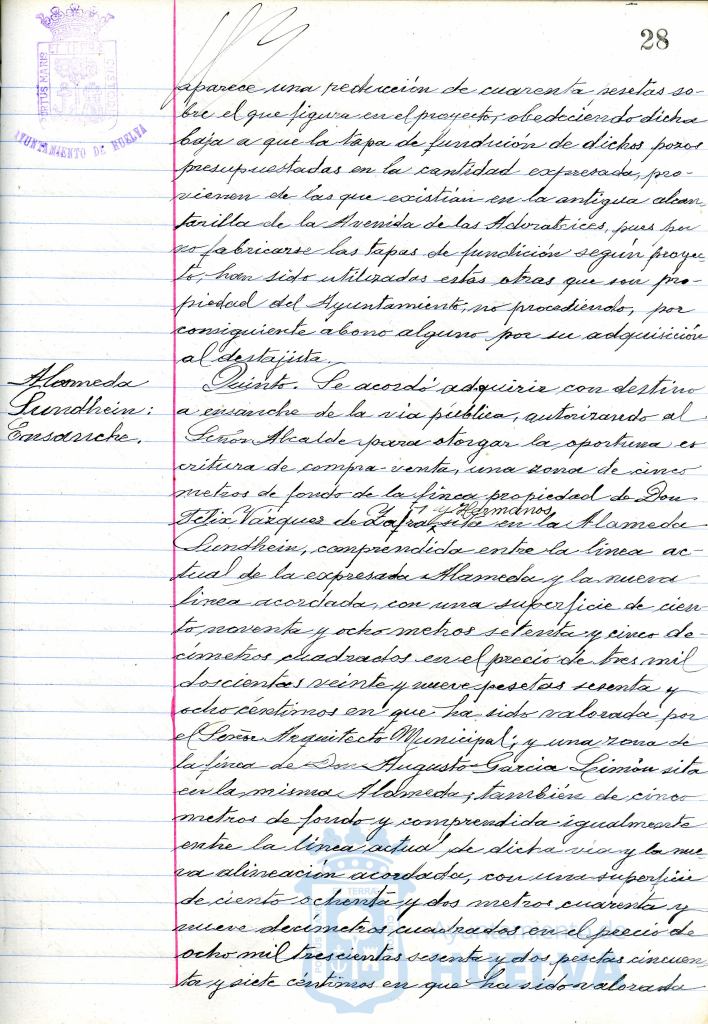 28
PORTUS MARIS
ET TERRÆ
CUSTODIA
AYUNTAMIENTO DE HUELVA
aparece una reducción de cuarenta pesetas so-
bre el que figura en el proyecto, obedeciendo dicha
baja a que la tapa de fundición de dichos pozos
presupuestadas en la cantidad expresada, pro-
vienen de las que existían en la antigua alcan-
tarilla de la Avenida de las Adoratrices, pues por
no fabricarse las tapas de fundición según proyec-
to, han sido utilizadas estas otras que son pro-
piedad del Ayuntamiento, no procediendo, por
consiguiente abono alguno por su adquisición
al destajista.
Alameda
Sundhein:
Ensanche.
Quinto. Se acordó adquirir con destino
a ensanche de la via pública, autorizando al
Señor Alcalde para otorgar la oportuna es
critura de compra-venta, una zona de cinco
metros de fondo de la finca propiedad de Don
Félix Vázquez de Zafra y Hermanos, sita en la Alameda
Sundhein, comprendida entre la linea ac-
tual de la expresada Alameda y la nueva
linea acordada, con una superficie de cien-
to noventa y ocho metros setenta y cinco de-
címetros cuadrados en el precio de tres mil
doscientas veinte y nueve pesetas sesenta y
ocho céntimos en que ha sido valorada por
el Señor Arquitecto Municipal; y una zona de
la finca de Don Augusto Garcia Limón sita
en la misma Alameda, también de cinco
metros de fondo y comprendida igualmente
entre la linea actual de dicha via y la nue-
va alineación acordada, con una superficie
de ciento ochenta y dos metros cuarenta y
nueve decimetros cuadrados en el precio de
ocho mil trescientas sesenta y dos pesetas cincuen-
ta y siete céntimos en que ha sido valorada
Ayuntamiento de
HUELVA